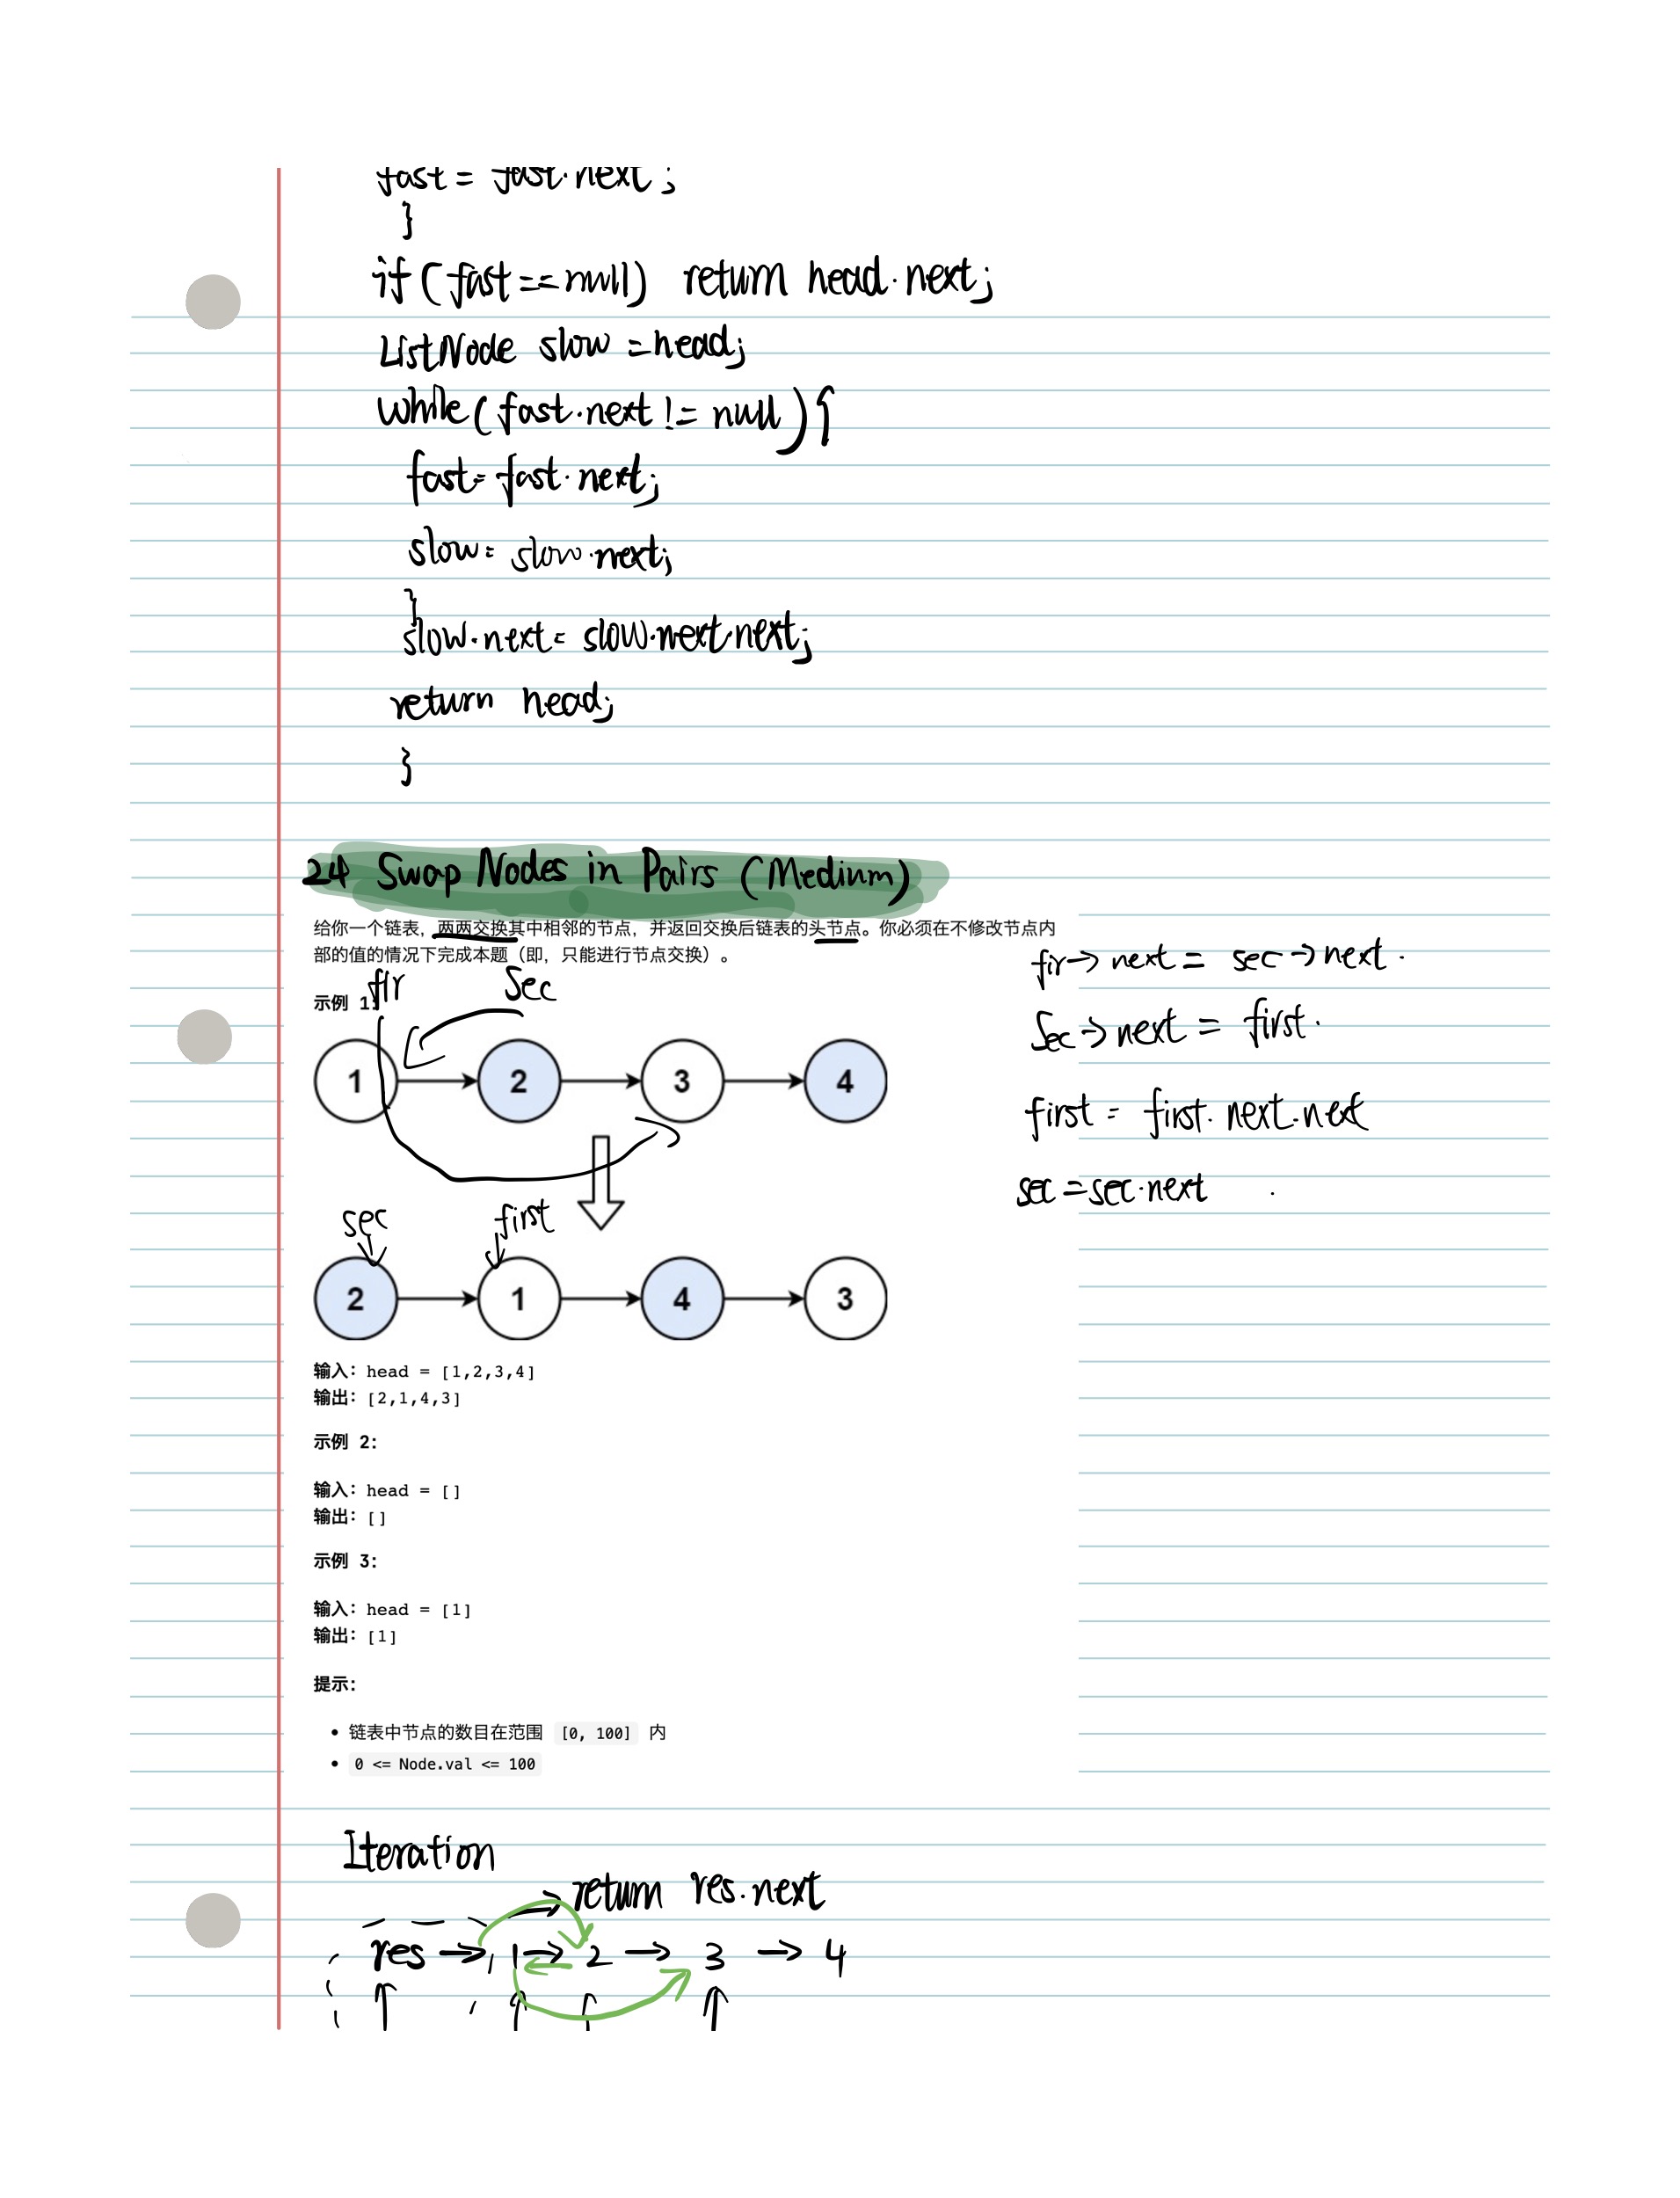 fast = fast.next;
}
if (fast == null) return head.next;
ListNode slow = head;
while (fast.next != null) {
fast = fast.next;
slow = slow.next;
}
slow.next = slow.next.next;
return head;
}
24 Swap Nodes in Pairs (Medium)
给你一个链表，两两交换其中相邻的节点，并返回交换后链表的头节点。你必须在不修改节点内
部的值的情况下完成本题（即，只能进行节点交换）。
fir→next = sec→next.
Sec→next = first.
first = first.next.next
sec = sec.next
示例 1:
fir Sec
1 2 3 4
sec first
2 1 4 3
输入：head = [1,2,3,4]
输出：[2,1,4,3]
示例 2:
输入：head = []
输出：[]
示例 3:
输入：head = [1]
输出：[1]
提示：
• 链表中节点的数目在范围 [0, 100] 内
• 0 <= Node.val <= 100
Iteration
→ return res.next
res → 1 → 2 → 3 → 4